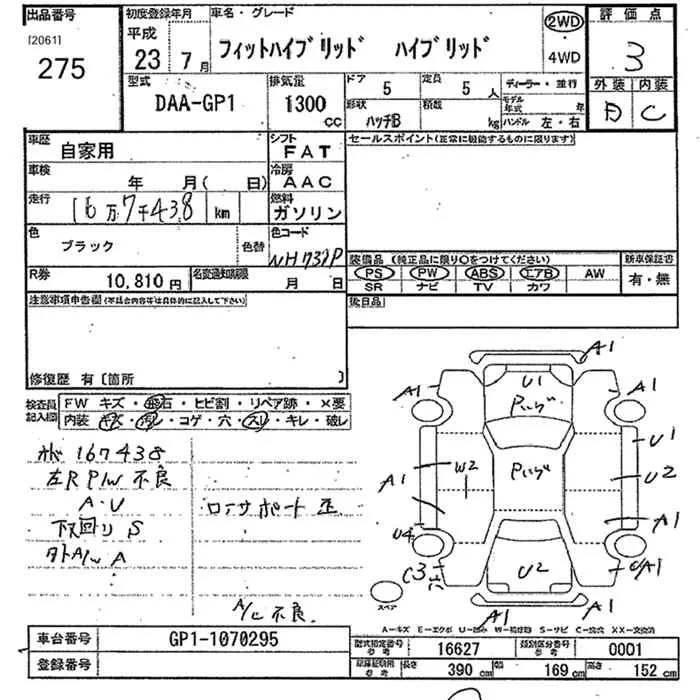 出品番号
[2061]
275
初度登録年月
平成
23 7月
車名・グレード
フィットハイブリッド ハイブリッド
2WD
・
4WD
評価点
3
外装 内装
C
型式
DAA-GP1
排気量
1300
cc
ドア
5
定員
5人
形状
ハッチB
積載
kg
ディーラー・並行
モデル年式 年
ハンドル 左・右
車歴
自家用
シフト
FAT
車検
年 月( 日)
冷房
AAC
走行
16万7千438 km
燃料
ガソリン
色
ブラック
色替
色コード
NH731P
R券
10,810円
名変通知期限
月 日
セールスポイント(正常に機能するものに限ります)
装備品 (純正品に限り○をつけてください)
新車保証書
PS PW ABS エアB AW
SR ナビ TV カワ
有・無
後日品
注意事項申告欄(不具合内容等は具体的に記入して下さい)
修復歴 有〔箇所 〕
検査員記入欄
FW キズ・飛石・ヒビ割・リペア跡・×要
内装 キズ・汚レ・コゲ・穴・スレ・キレ・破レ
167438
左R P/W 不良
A・U
下回り S
A
A/C 不良
A1
A1
A1
U1
U1
W2
U2
A1
A1
U4
C3
U2
A1
A1
スペア
A−キズ E−エクボ U−凹み W−補修跡 S−サビ C−腐食 XX−交換済
車台番号
GP1-1070295
登録番号
型式指定番号 参考
16627
類別区分番号 参考
0001
参考
長さ 390 cm
幅 169 cm
高さ 152 cm